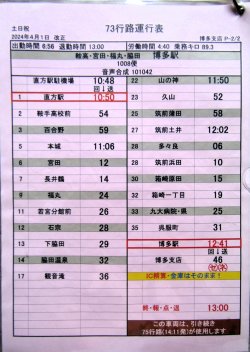 土日祝
73行路運行表
2024年4月1日 改正
博多支店 P-2/2
出勤時間 6:56 退勤時間 13:00 労働 4:40 乗務キロ 89.3
鞍高・宮田・福丸・脇田 博多駅
1008便
音声合成 101042
直方駅駐機場 10:48
回↓送
1 直方駅 10:50
2 鞍手高校前 54
3 百合野 59
5 本城 11:06
6 宮田 12
7 長井鶴 14
9 福丸 24
11 若宮分館前 26
12 石宗 28
13 下脇田 29
14 脇田温泉 32
17 観音滝 36
22 山の神 11:50
23 久山 52
25 筑前蒲田 58
27 筑前土井 12:02
28 多々良 06
29 筑前原田 10
30 箱崎原田 15
32 箱崎一丁目 19
33 九大病院・県 25
35 呉服町 31
博多駅 12:41
回↓送
博多支店 46
IC精算・金庫はそのまま!
終・報・点・退 13:00
この車両は、引き続き
75行路(14:11発)で使用